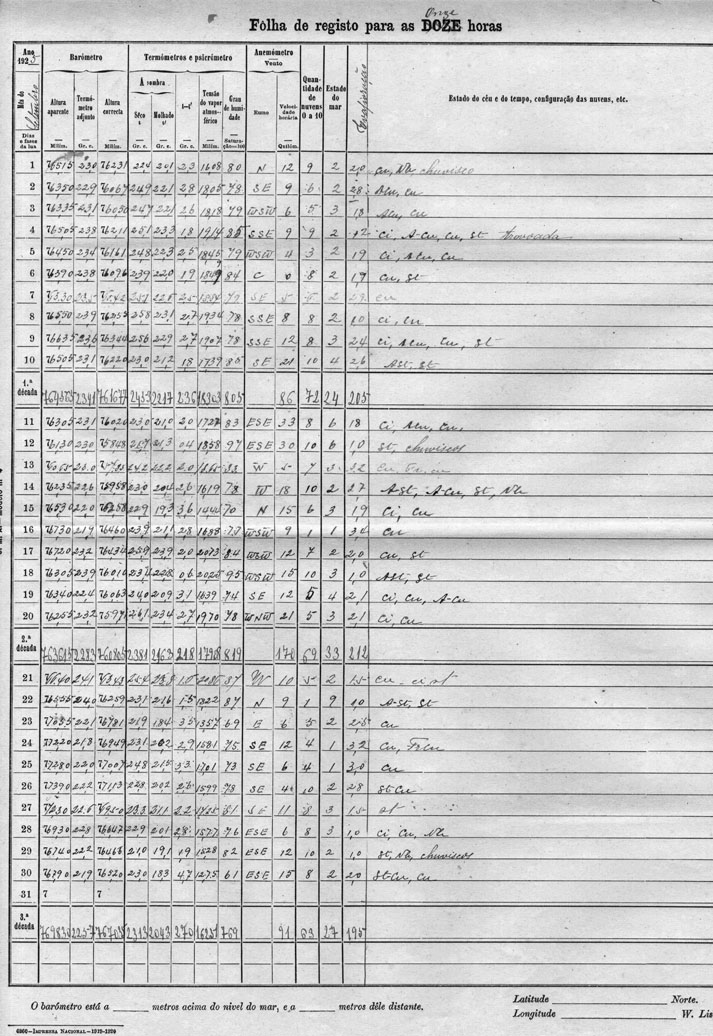 Onze
Fôlha de registo para as DOZE horas
Ano
192
Barómetro
Termómetros e psicrómetro
Anemómetro
Vento
Mês de
Dias e fases da lua
Altura aparente
Termómetro adjunto
Altura correcta
À sombra
Sêco t
Molhado t'
t—t'
Tensão do vapor atmosférico
Grau de humidade
Rumo
Velocidade horária
Quantidade de nuvens 0 a 10
Estado do mar
Evaporação
Estado do céu e do tempo, configuração das nuvens, etc.
Milím. Gr. c. Milím. Gr. c. Gr. c. Gr. c. Milím. Saturação=100 Quilóm.
1 230 76231 224 201 23 1608 80 N 12 9 2 2,0 cu, Nb, chuvisco
2 76350 229 76067 249 221 28 1805 78 SE 9 6 2 cu
3 76335 231 76050 247 221 26 1818 79 WSW 6 5 3 cu
4 76505 238 76211 251 233 18 1914 85 SSE 9 9 2 ci, A-cu, cu, st trovoada
5 76450 234 76161 248 223 25 1845 79 WSW 4 3 2 1,9 ci, cu
6 76390 238 76096 239 220 19 84 C 0 8 2 1,9 cu, st
7 SE 2 cu
8 76550 239 258 231 27 1934 78 SSE 8 8 2 ci, cu
9 76635 236 76344 256 229 27 1907 78 SSE 12 8 3 2,4 ci, cu, st
10 76505 231 76220 230 212 18 1739 85 SE 21 10 4 2,6 Ast, st
1.ª década 2341 2453 2217 236 805 86 72 24 205
11 76305 231 76020 230 210 20 1727 83 ESE 33 8 6 1,8 ci, cu,
12 76130 230 75848 217 213 04 1858 97 ESE 30 10 6 1,0 st, chuviscos
13 242 222 20 W 7 3 cu
14 76235 226 75958 230 204 26 1619 78 W 18 10 2 2,7 A-st, A-cu, st, Nb
15 220 229 193 36 1444 70 N 15 6 3 1,9 ci, cu
16 76730 217 76460 239 211 28 1688 WSW 9 1 1 cu
17 76720 232 76434 259 239 20 2073 84 WSW 12 7 2 2,0 cu, st
18 76305 239 76010 234 228 06 95 WSW 15 10 3 1,0 Ast, st
19 76340 224 76063 240 209 31 1639 74 SE 12 5 4 2,1 ci, cu, A-cu
20 76255 232 261 234 27 1970 78 WNW 21 5 3 2,1 ci, cu
2.ª década 763615 2283 760805 2381 2163 218 819 170 69 33 212
21 241 W 10 5 2 1,5 cu - ci st
22 76555 240 76259 231 216 1,5 87 N 9 1 9 A-st, st
23 221 76781 219 184 35 1357 69 E 6 5 2 cu
24 77220 213 76949 231 202 29 1581 75 SE 12 4 1 3,2 cu, Frcu
25 77280 220 77007 248 215 33 1701 73 SE 6 4 1 3,0 cu
26 77390 222 77113 228 202 26 1599 78 SE 10 2 2,8 st-cu
27 SE 11 8 3 1,5 st
28 76930 228 76647 229 201 28 1577 76 ESE 6 8 3 1,0 ci, cu, Nb
29 76740 222 210 191 19 1528 82 ESE 12 10 2 1,0 st, Nb, chuviscos
30 76790 219 76520 230 183 47 1275 61 ESE 15 8 2 2,0 st-cu, cu
31 7 7
3.ª década 2257 2313 2043 270 91 63 27 195
O barómetro está a ______ metros acima do nível do mar, e a ______ metros dêle distante.
Latitude ______ Norte.
Longitude ______ W. Lis
6960—Imprensa Nacional—1919-1920